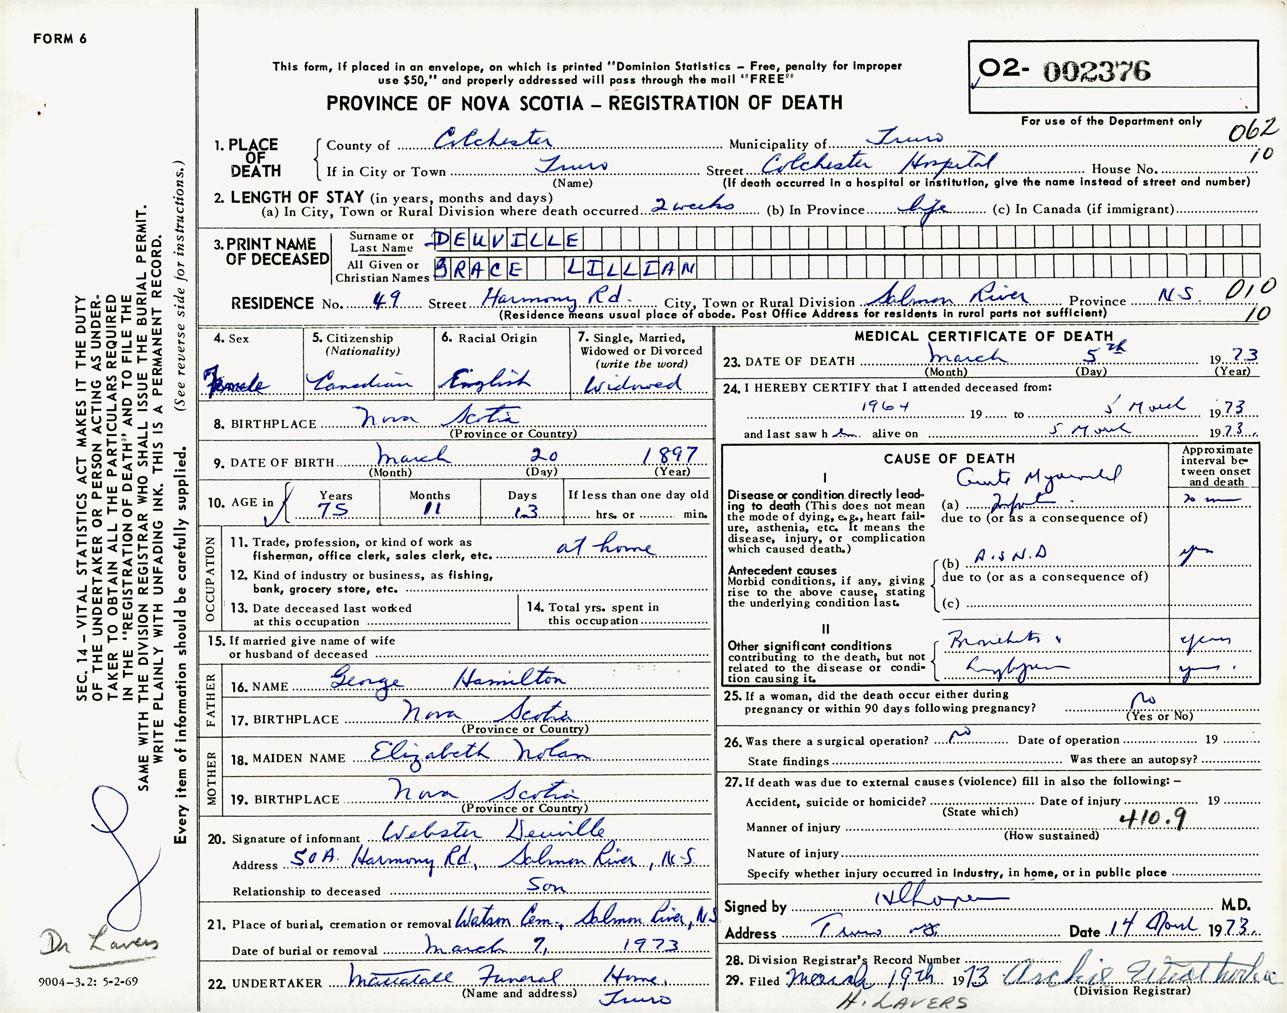 FORM 6
This form, if placed in an envelope, on which is printed "Dominion Statistics – Free, penalty for improper
use $50," and properly addressed will pass through the mail "FREE"
PROVINCE OF NOVA SCOTIA – REGISTRATION OF DEATH
02- 002376
For use of the Department only
062
10
1. PLACE OF DEATH
County of Colchester Municipality of Truro
If in City or Town Truro Street Colchester Hospital House No.
(Name) (If death occurred in a hospital or institution, give the name instead of street and number)
2. LENGTH OF STAY (in years, months and days)
(a) In City, Town or Rural Division where death occurred 2 weeks (b) In Province life (c) In Canada (if immigrant)
3. PRINT NAME OF DECEASED
Surname or Last Name DEUVILLE
All Given or Christian Names GRACE LILLIAN
RESIDENCE No. 49 Street Harmony Rd. City, Town or Rural Division Salmon River Province N.S. 010
(Residence means usual place of abode. Post Office Address for residents in rural parts not sufficient) 10
4. Sex Female
5. Citizenship (Nationality) Canadian
6. Racial Origin English
7. Single, Married, Widowed or Divorced (write the word) Widowed
8. BIRTHPLACE Nova Scotia
(Province or Country)
9. DATE OF BIRTH March 20 1897
(Month) (Day) (Year)
10. AGE in Years 75 Months 11 Days 13 If less than one day old
hrs. or min.
OCCUPATION
11. Trade, profession, or kind of work as
fisherman, office clerk, sales clerk, etc. at home
12. Kind of industry or business, as fishing,
bank, grocery store, etc.
13. Date deceased last worked
at this occupation
14. Total yrs. spent in
this occupation
15. If married give name of wife
or husband of deceased
FATHER
16. NAME George Hamilton
17. BIRTHPLACE Nova Scotia
(Province or Country)
MOTHER
18. MAIDEN NAME Elizabeth Nolan
19. BIRTHPLACE Nova Scotia
(Province or Country)
20. Signature of informant Webster Deuville
Address 50A Harmony Rd., Salmon River, N.S
Relationship to deceased Son
21. Place of burial, cremation or removal Watson Cem., Salmon River, NS
Date of burial or removal March 7, 1973
22. UNDERTAKER Mattatall Funeral Home,
(Name and address) Truro
MEDICAL CERTIFICATE OF DEATH
23. DATE OF DEATH March 5th 1973
(Month) (Day) (Year)
24. I HEREBY CERTIFY that I attended deceased from:
1964 19 to 5 March 1973
and last saw h er alive on 5 March 1973.
CAUSE OF DEATH
Approximate interval between onset and death
I
Disease or condition directly leading to death (This does not mean the mode of dying, e.g., heart failure, asthenia, etc. It means the disease, injury, or complication which caused death.)
Acute Myocardial
(a) Infarct.
due to (or as a consequence of)
Antecedent causes
Morbid conditions, if any, giving rise to the above cause, stating the underlying condition last.
(b) A.S.H.D yrs
due to (or as a consequence of)
(c)
II
Other significant conditions
contributing to the death, but not related to the disease or condition causing it.
Bronchitis & years
Emphysema yrs.
25. If a woman, did the death occur either during
pregnancy or within 90 days following pregnancy? no
(Yes or No)
26. Was there a surgical operation? no Date of operation 19
State findings Was there an autopsy?
27. If death was due to external causes (violence) fill in also the following: –
Accident, suicide or homicide? Date of injury 19
(State which)
410.9
Manner of injury
(How sustained)
Nature of injury
Specify whether injury occurred in industry, in home, or in public place
Signed by M.D.
Address Truro NS Date 14 1973.
28. Division Registrar's Record Number
29. Filed March 19th 1973 Archie
(Division Registrar)
H. LAVERS
SEC. 14 – VITAL STATISTICS ACT MAKES IT THE DUTY
OF THE UNDERTAKER OR PERSON ACTING AS UNDER-
TAKER TO OBTAIN ALL THE PARTICULARS REQUIRED
IN THE "REGISTRATION OF DEATH" AND TO FILE THE
SAME WITH THE DIVISION REGISTRAR WHO SHALL ISSUE THE BURIAL PERMIT.
WRITE PLAINLY WITH UNFADING INK. THIS IS A PERMANENT RECORD.
Every item of information should be carefully supplied. (See reverse side for instructions.)
Dr Lavers
9004-3.2: 5-2-69